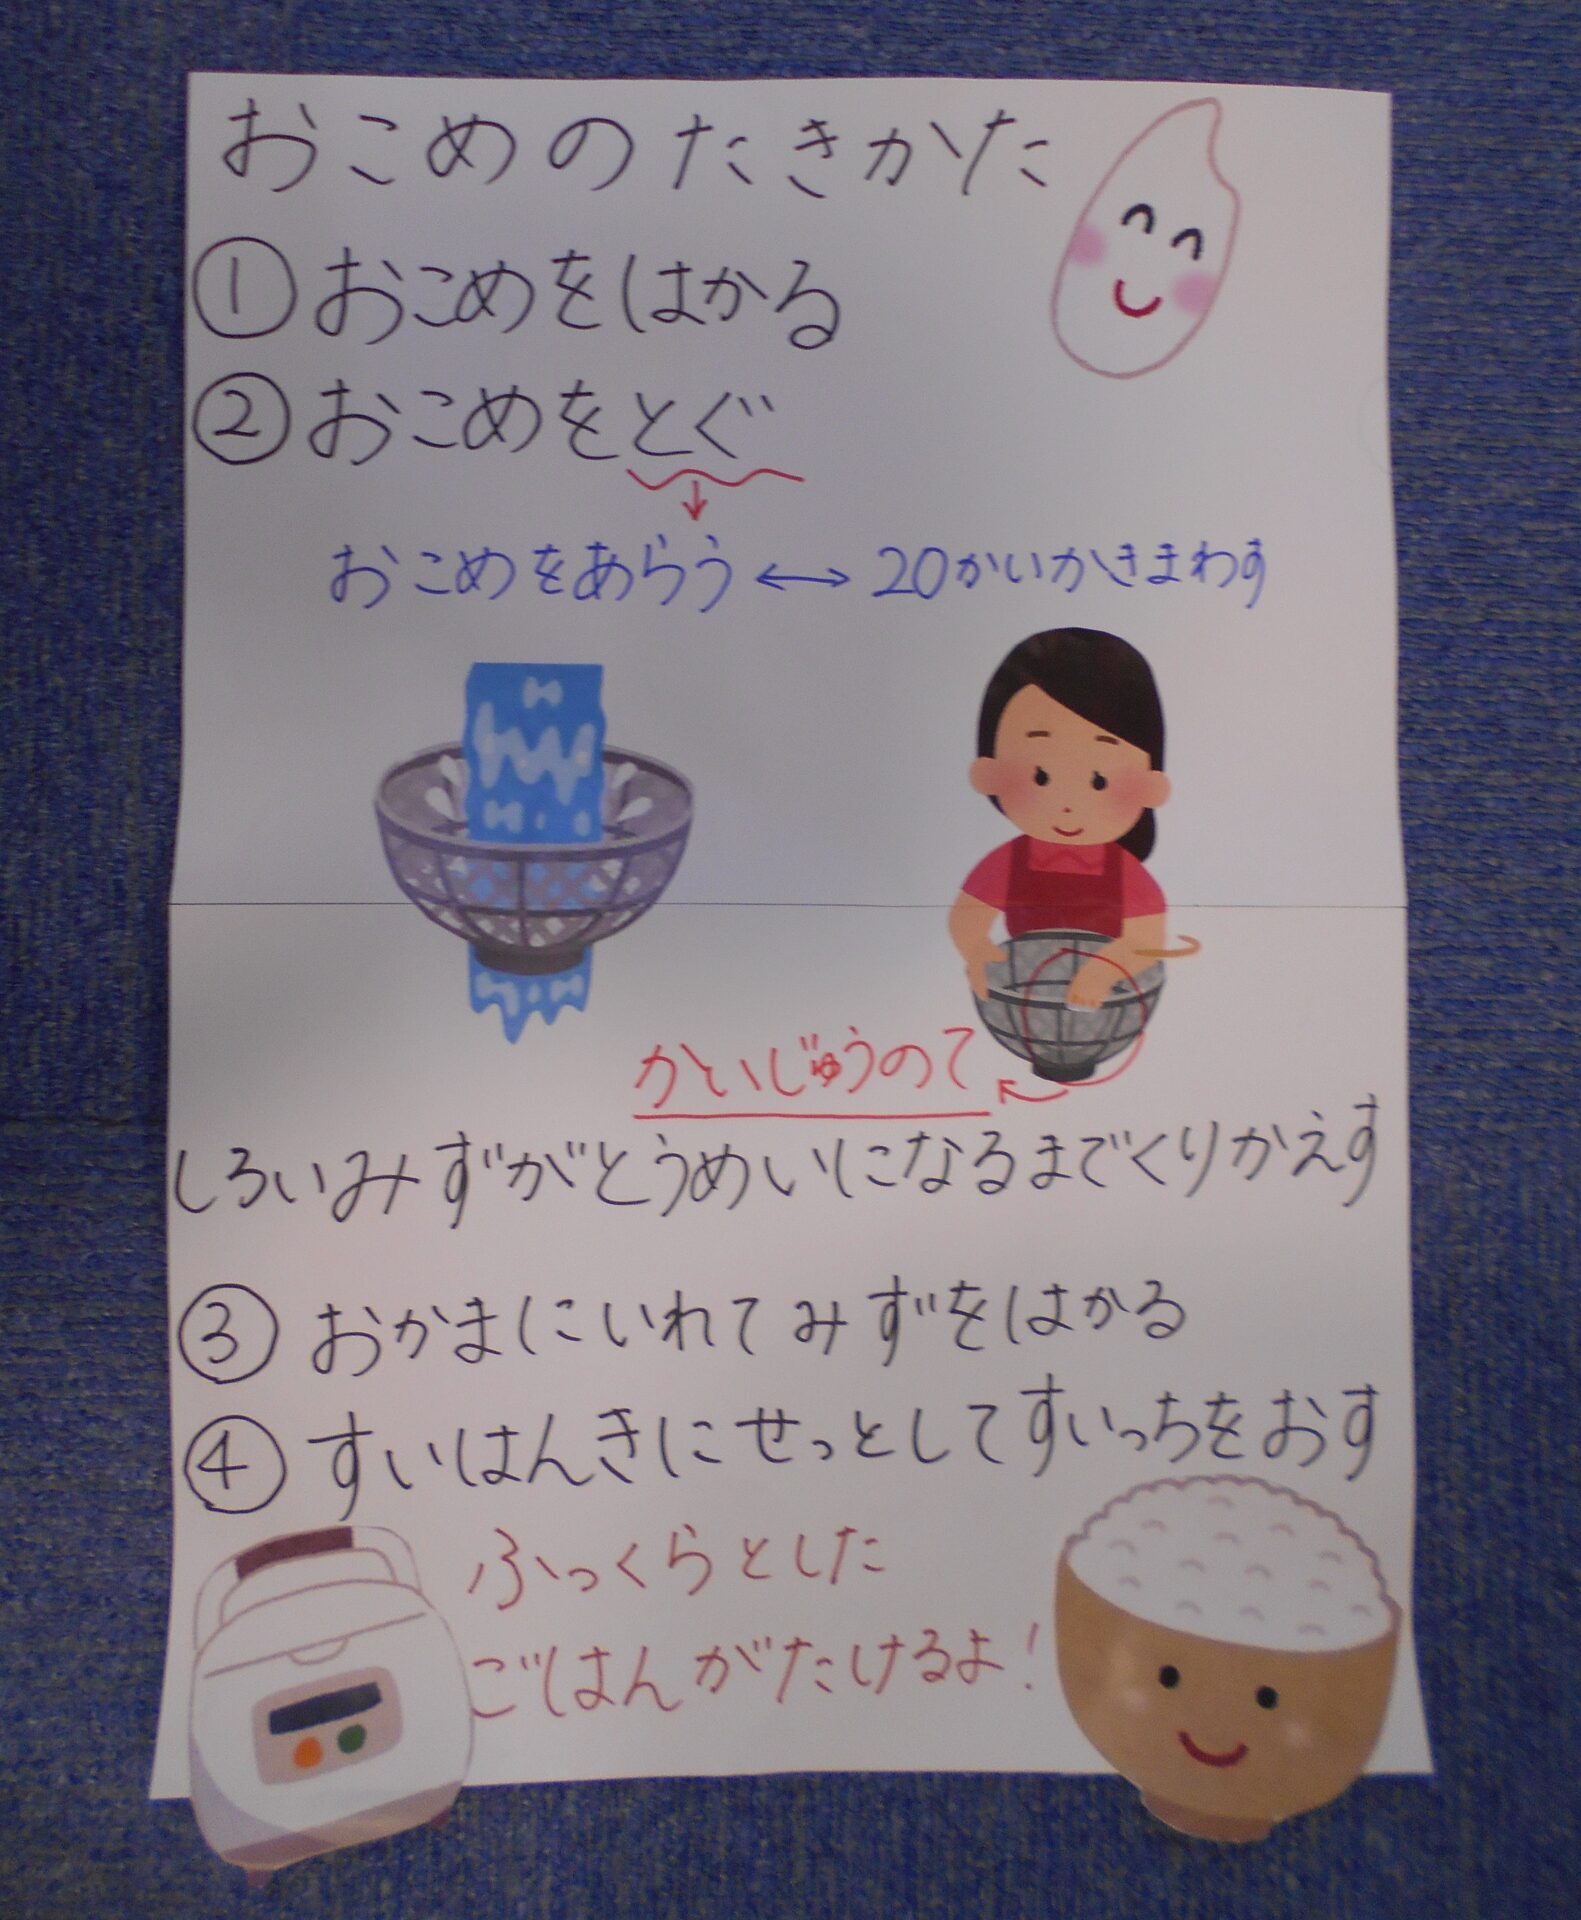 おこめのたきかた
①おこめをはかる
②おこめをとぐ
おこめをあらう ↔ 20かいかきまわす
かいじゅうのて
しろいみずがとうめいになるまでくりかえす
③おかまにいれてみずをはかる
④すいはんきにせっとしてすいっちをおす
ふっくらとした
ごはんがたけるよ!